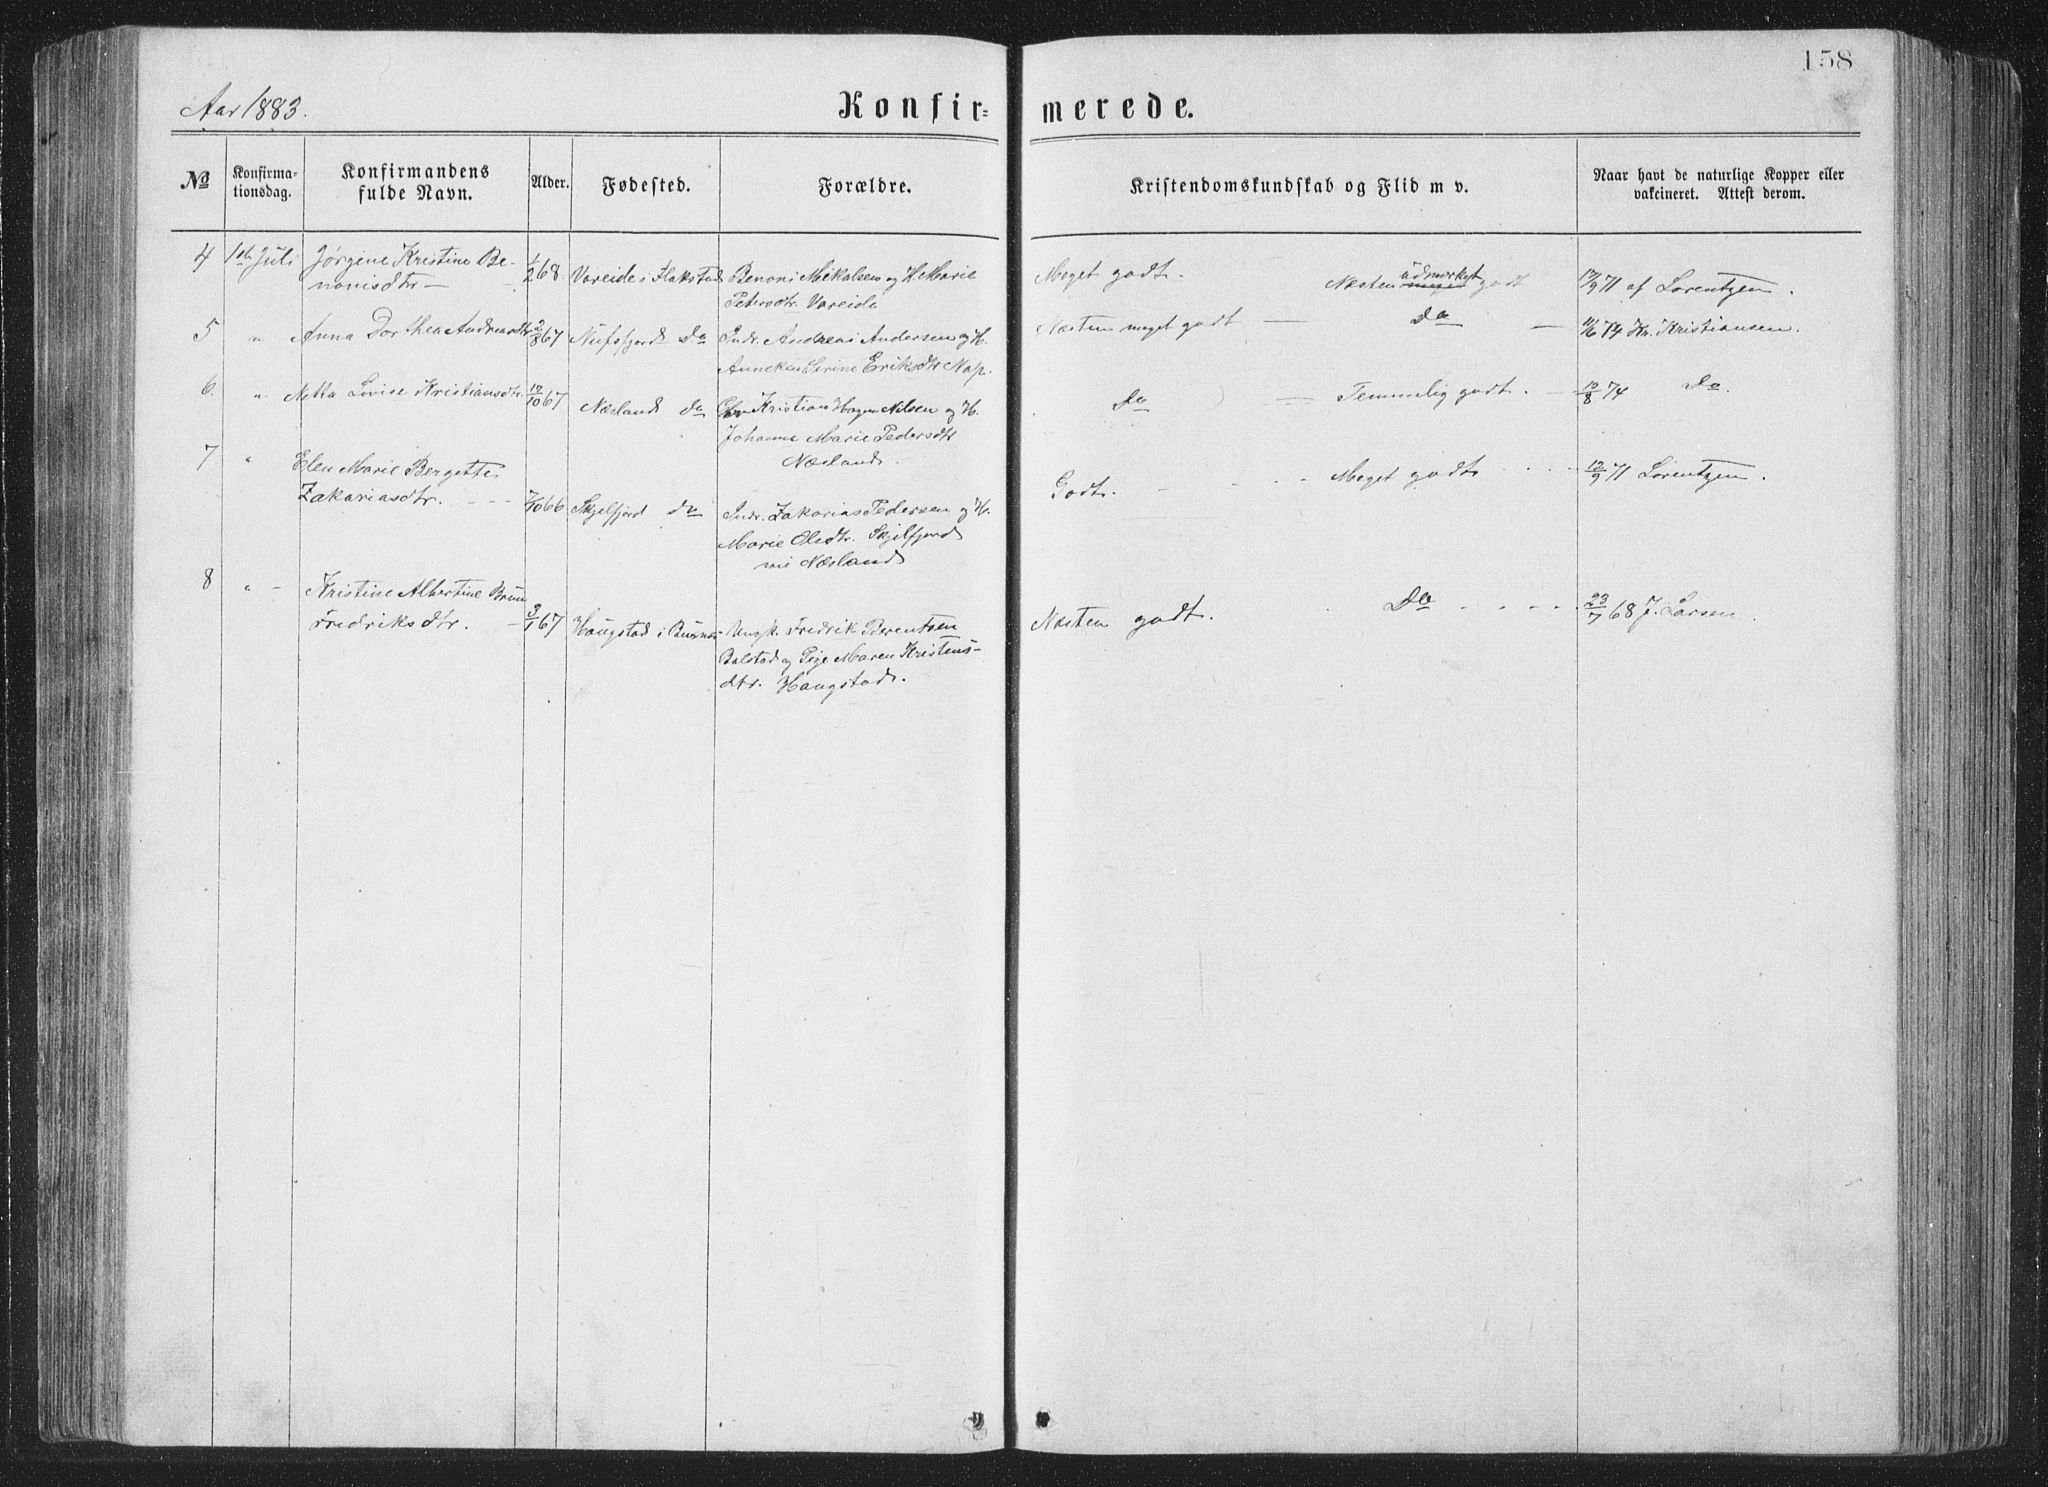 158
Aar 1883.
Konfir-
merede.
No
Konfirma-
tionsdag.
Konfirmandens
fulde Navn.
Alder.
Fødested.
Forældre.
Kristendomskundskab og Flid m v.
Naar havt de naturlige Kopper eller
vakcineret. Attest derom.
4 1ste Juli Jørgine Kristine Be- 1/2 68 Vareide i Flakstad Benoni Mikalsen og H. Marie
nonisdtr —
Petersdtr. Vareide
Meget godt. Næsten udmerket godt 17/9 71 af Lorentzen.
5 " Anna Dorthea Andreasdtr 2/8 67 Nufsfjord Do Indr. Andreas Andersen og H.
Anneken Serine Eriksdtr Nap.
Næsten meget godt — Do — 11/6 74 Kr. Kristiansen.
6. " Netta Lovise Kristiansdtr. 12/10 67 Næsland do Kristian Hagen Nilsen og H.
Johanna Marie Pedersdtr
Næsland.
Do — Temmelig godt. — 10/8 74 Do.
7 " Elen Marie Bergette
Zakariasdtr. 7/10 66 Skjelfjord do Indr. Zakarias Pedersen og H.
Marie Olsdtr. Skjelfjord
Næsland
Godt. Meget godt 12/9 71 Lorentzen.
8 " Kristine Albertine Brun
Fredriksdtr. 3/1 67 Haugstad i Buxnes Ungk. Fredrik Berentsen
Balstad og Pige Maren Kristens-
dtr. Haugstad.
Næsten godt. Do 23/7 68 J. Larsen